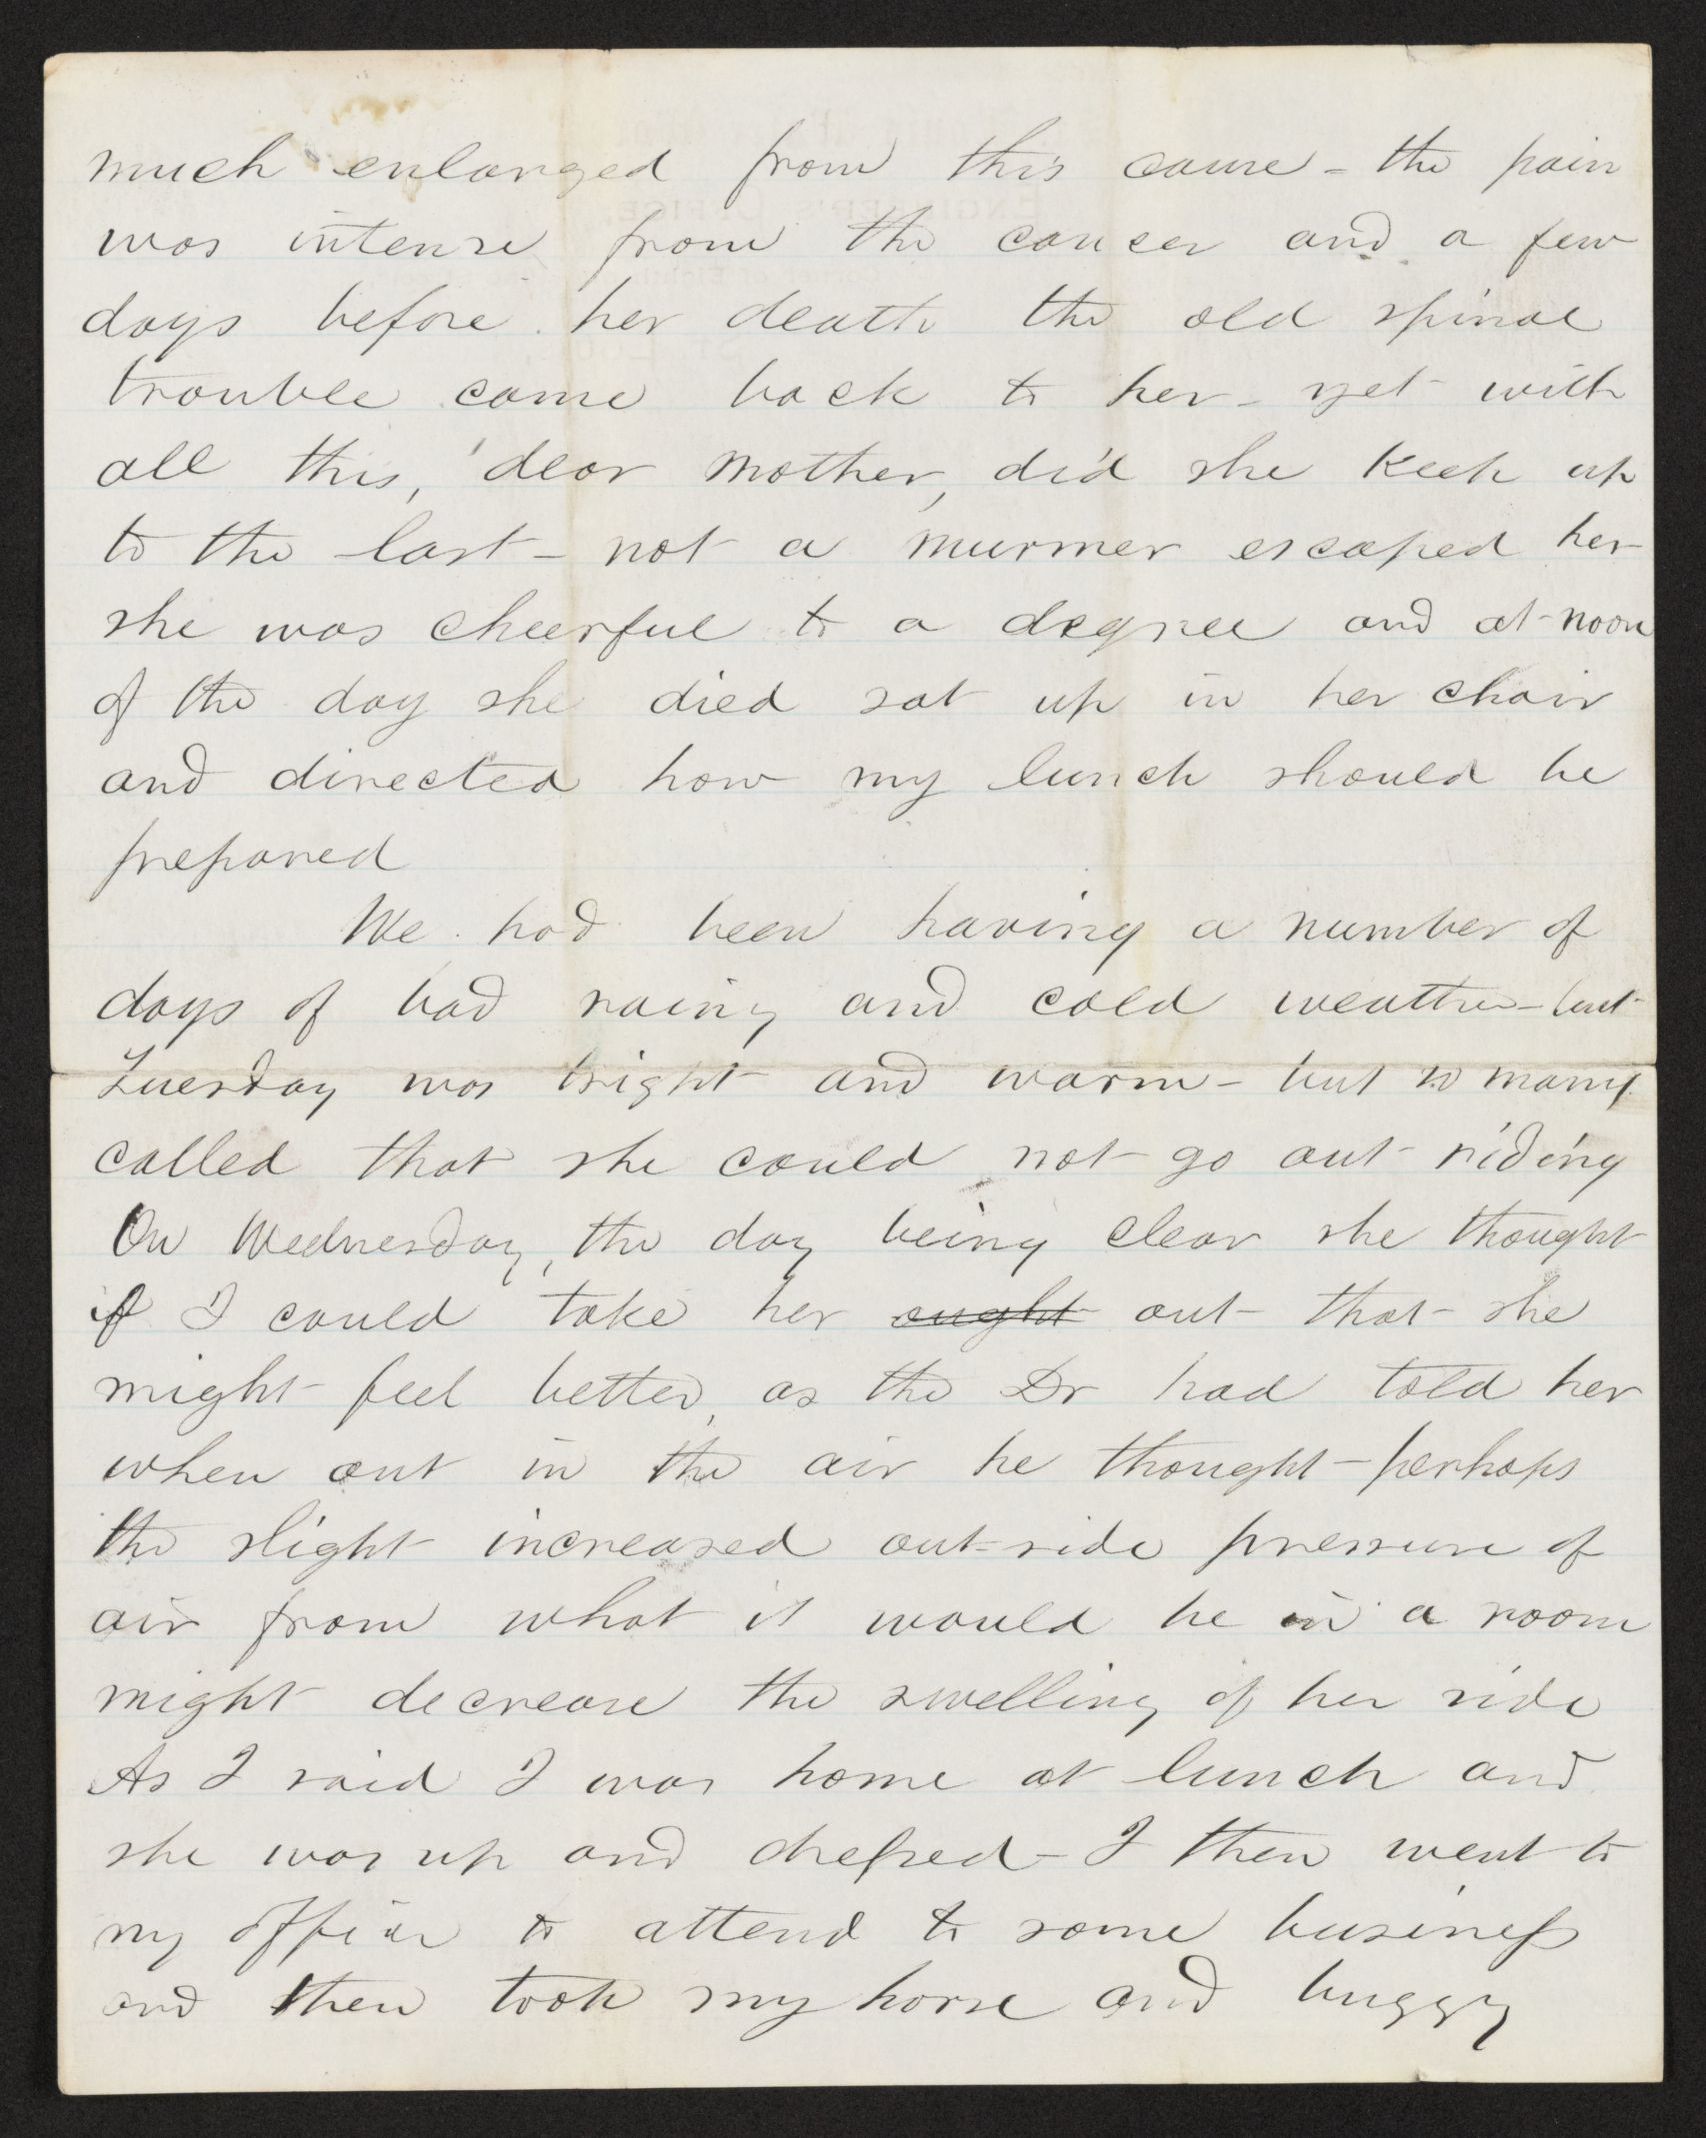 much enlarged from this cause - the pain
was intense from the cancer and a few
days before her death the old spinal
trouble came back to her - yet with
all this, dear mother, did she keep up
to the last - not a murmer escaped her
she was cheerful to a degree and at noon
of the day she died sat up in her chair
and directed how my lunch should be
prepared
We had been having a number of
days of bad rainy and cold weather - but
Tuesday was bright and warm - but so many
called that she could not go out riding
On Wednesday, the day being clear she thought
if I could take her ought out that she
might feel better, as the Dr had told her
when out in the air he thought - perhaps
the slight increased out-side pressure of
air from what it would be in a room
might decrease the swelling of her side
As I said I was home at lunch and
she was up and dressed - I then went to
my office to attend to some business
and then took my horse and buggy